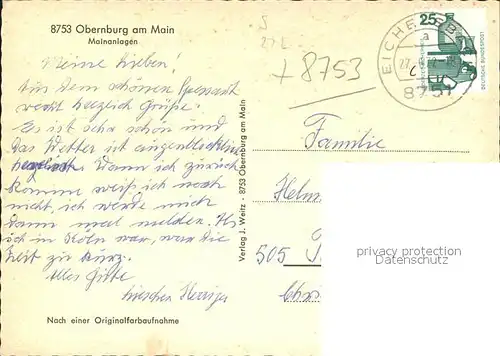 8753 Obernburg am Main
Mainanlagen
Meine Lieben!
Aus dem schönen Spessart
herzlich Grüße.
Es ist sehr schön und
das Wetter ist augenblicklich
Wann ich zurück
komme weiß ich noch
nicht, ich werde mich
dann mal melden. Als
ich in Köln war, war die
Zeit zu kurz.
Alles Gute
Nach einer Originalfarbaufnahme
Verlag J. Weitz - 8753 Obernburg am Main
+ 8753
25
DEUTSCHE BUNDESPOST
a
8751
Familie
505
privacy protection
Datenschutz